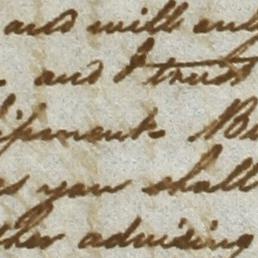 and will
and I trust
shipment. B
you shall
ther advising